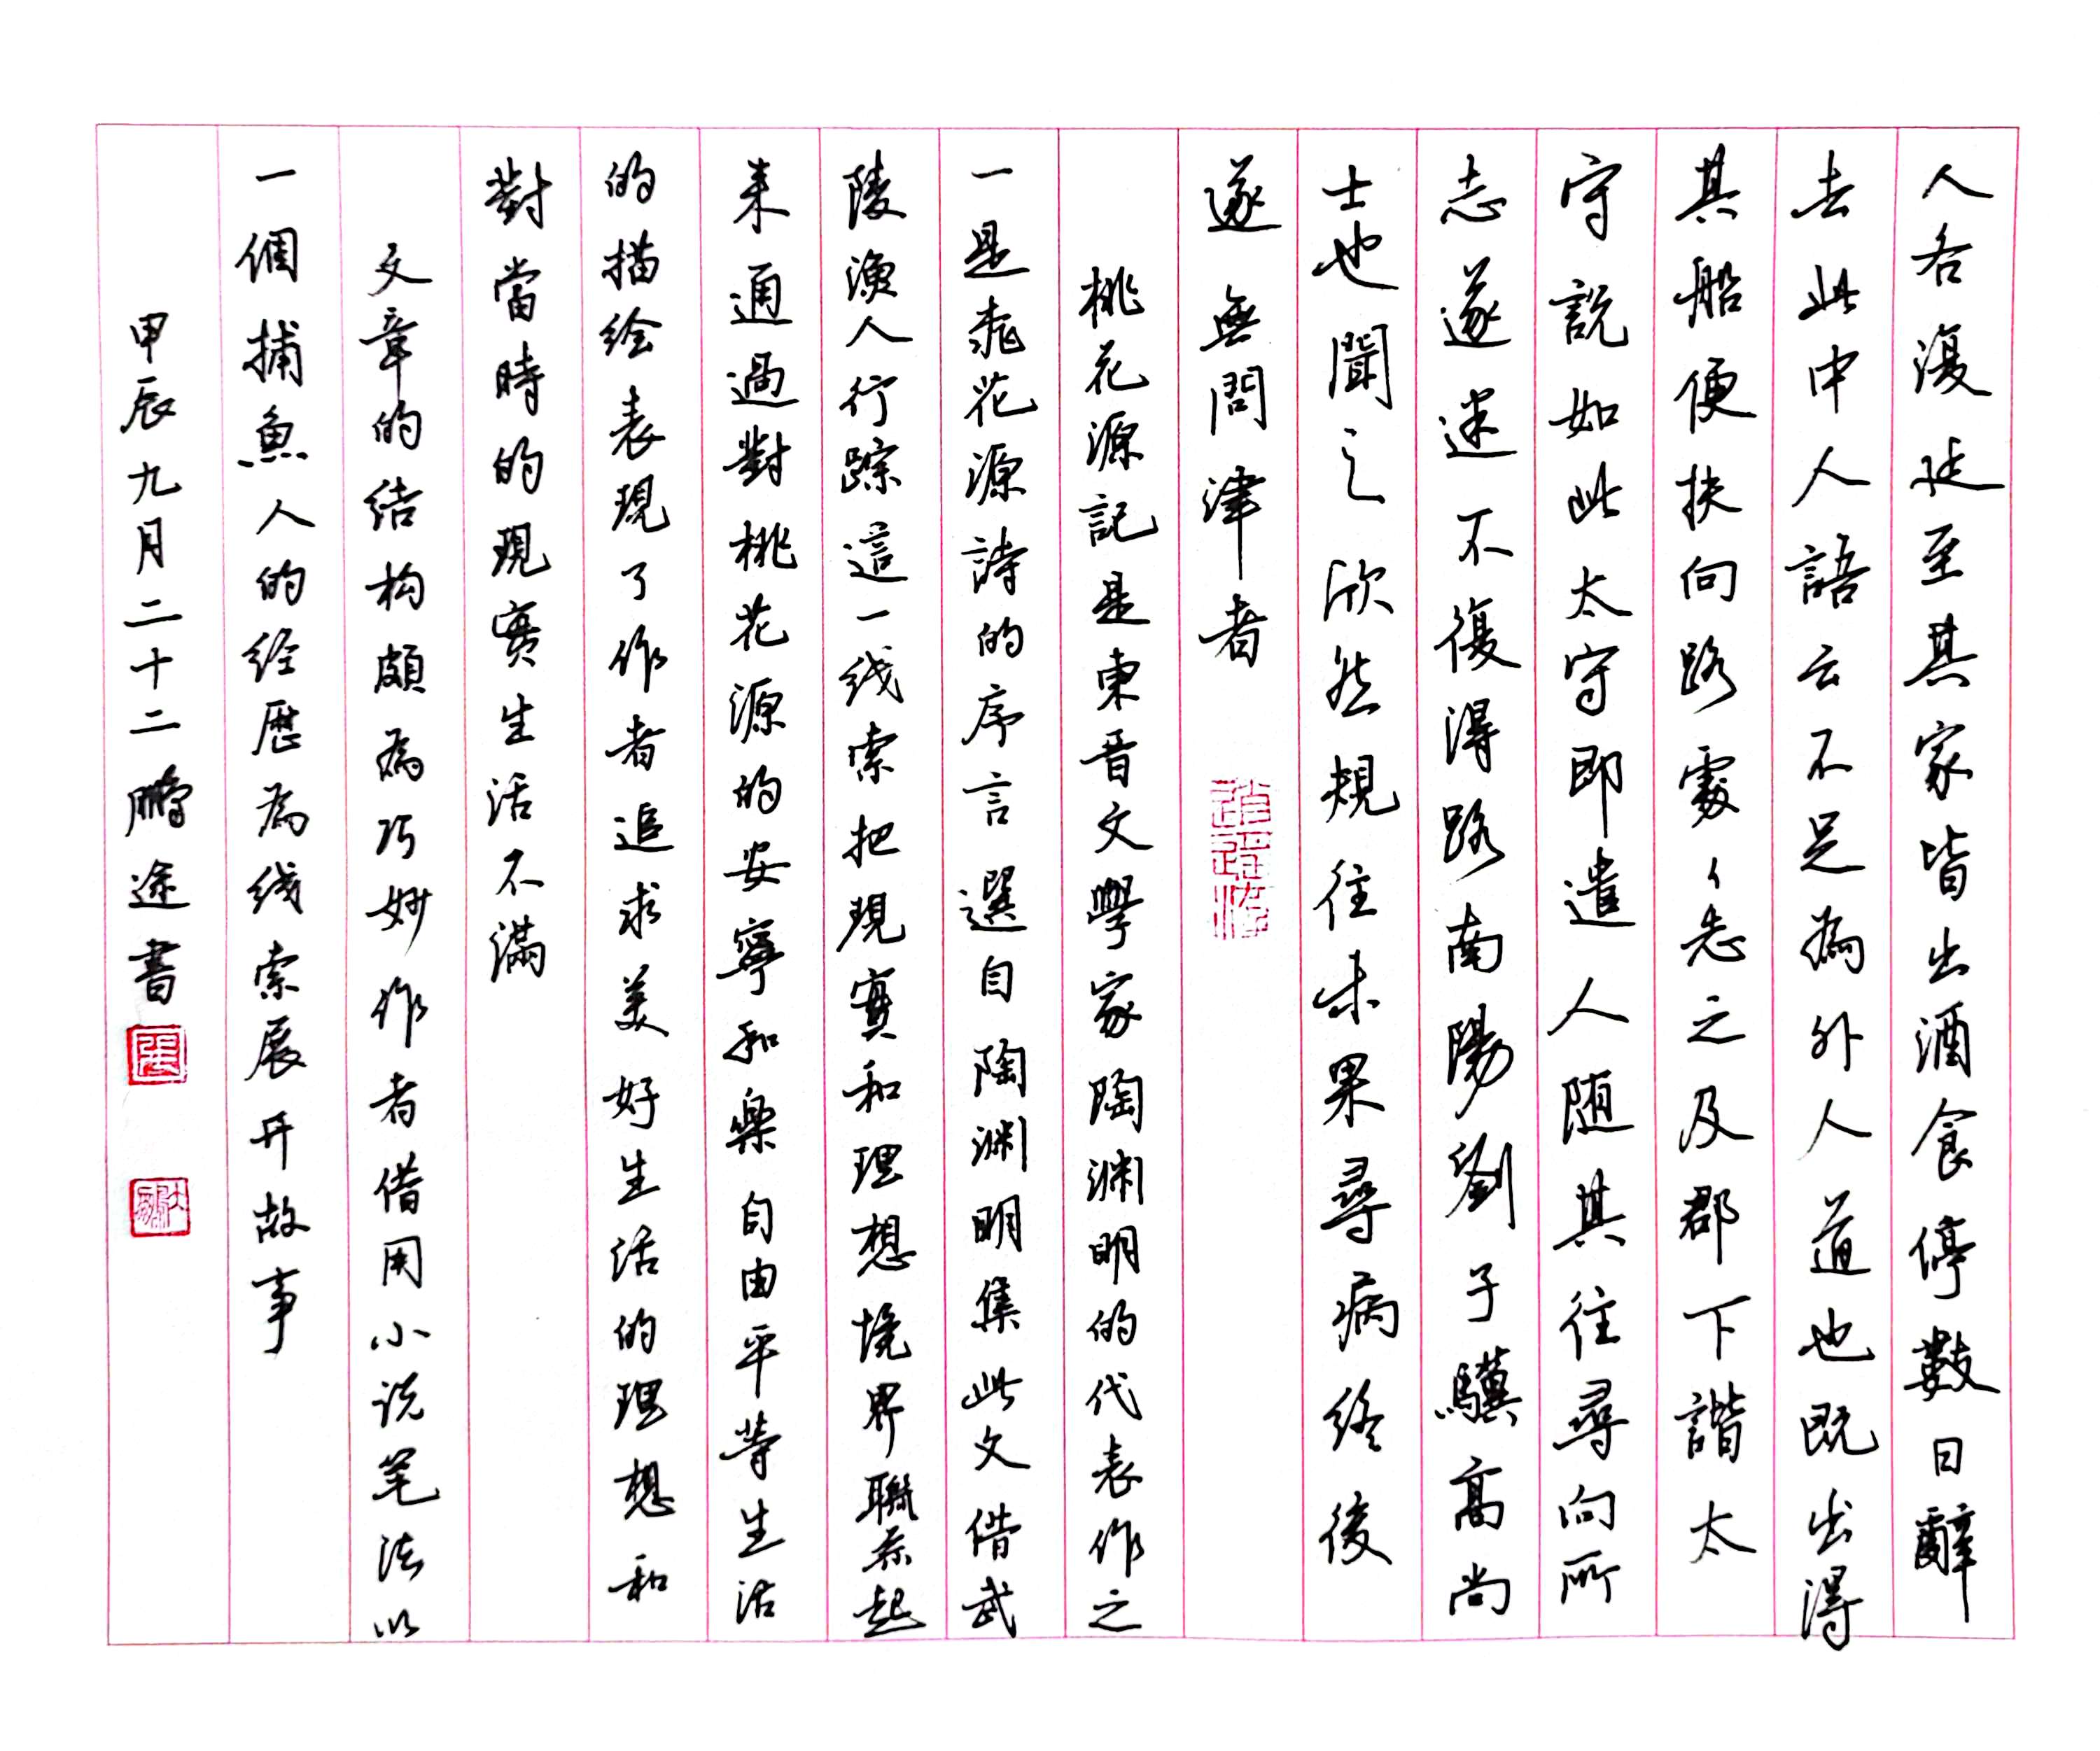 人各復延至其家皆出酒食停數日辭
去此中人語云不足為外人道也既出得
其船便扶向路處〻志之及郡下詣太
守說如此太守即遣人随其往尋向所
志遂迷不復得路南陽劉子驥高尚
士也聞之欣然規往未果尋病终後
遂無問津者
桃花源記是東晋文學家陶渊明的代表作之
一是桃花源詩的序言選自陶渊明集此文借武
陵漁人行踪這一线索把現實和理想境界聯系起
来通過對桃花源的安寧和樂自由平等生活
的描绘表現了作者追求美好生活的理想和
對當時的現實生活不滿
文章的结构頗為巧妙作者借用小说笔法以
一個捕魚人的经歷為线索展开故事
甲辰九月二十二鵬途書